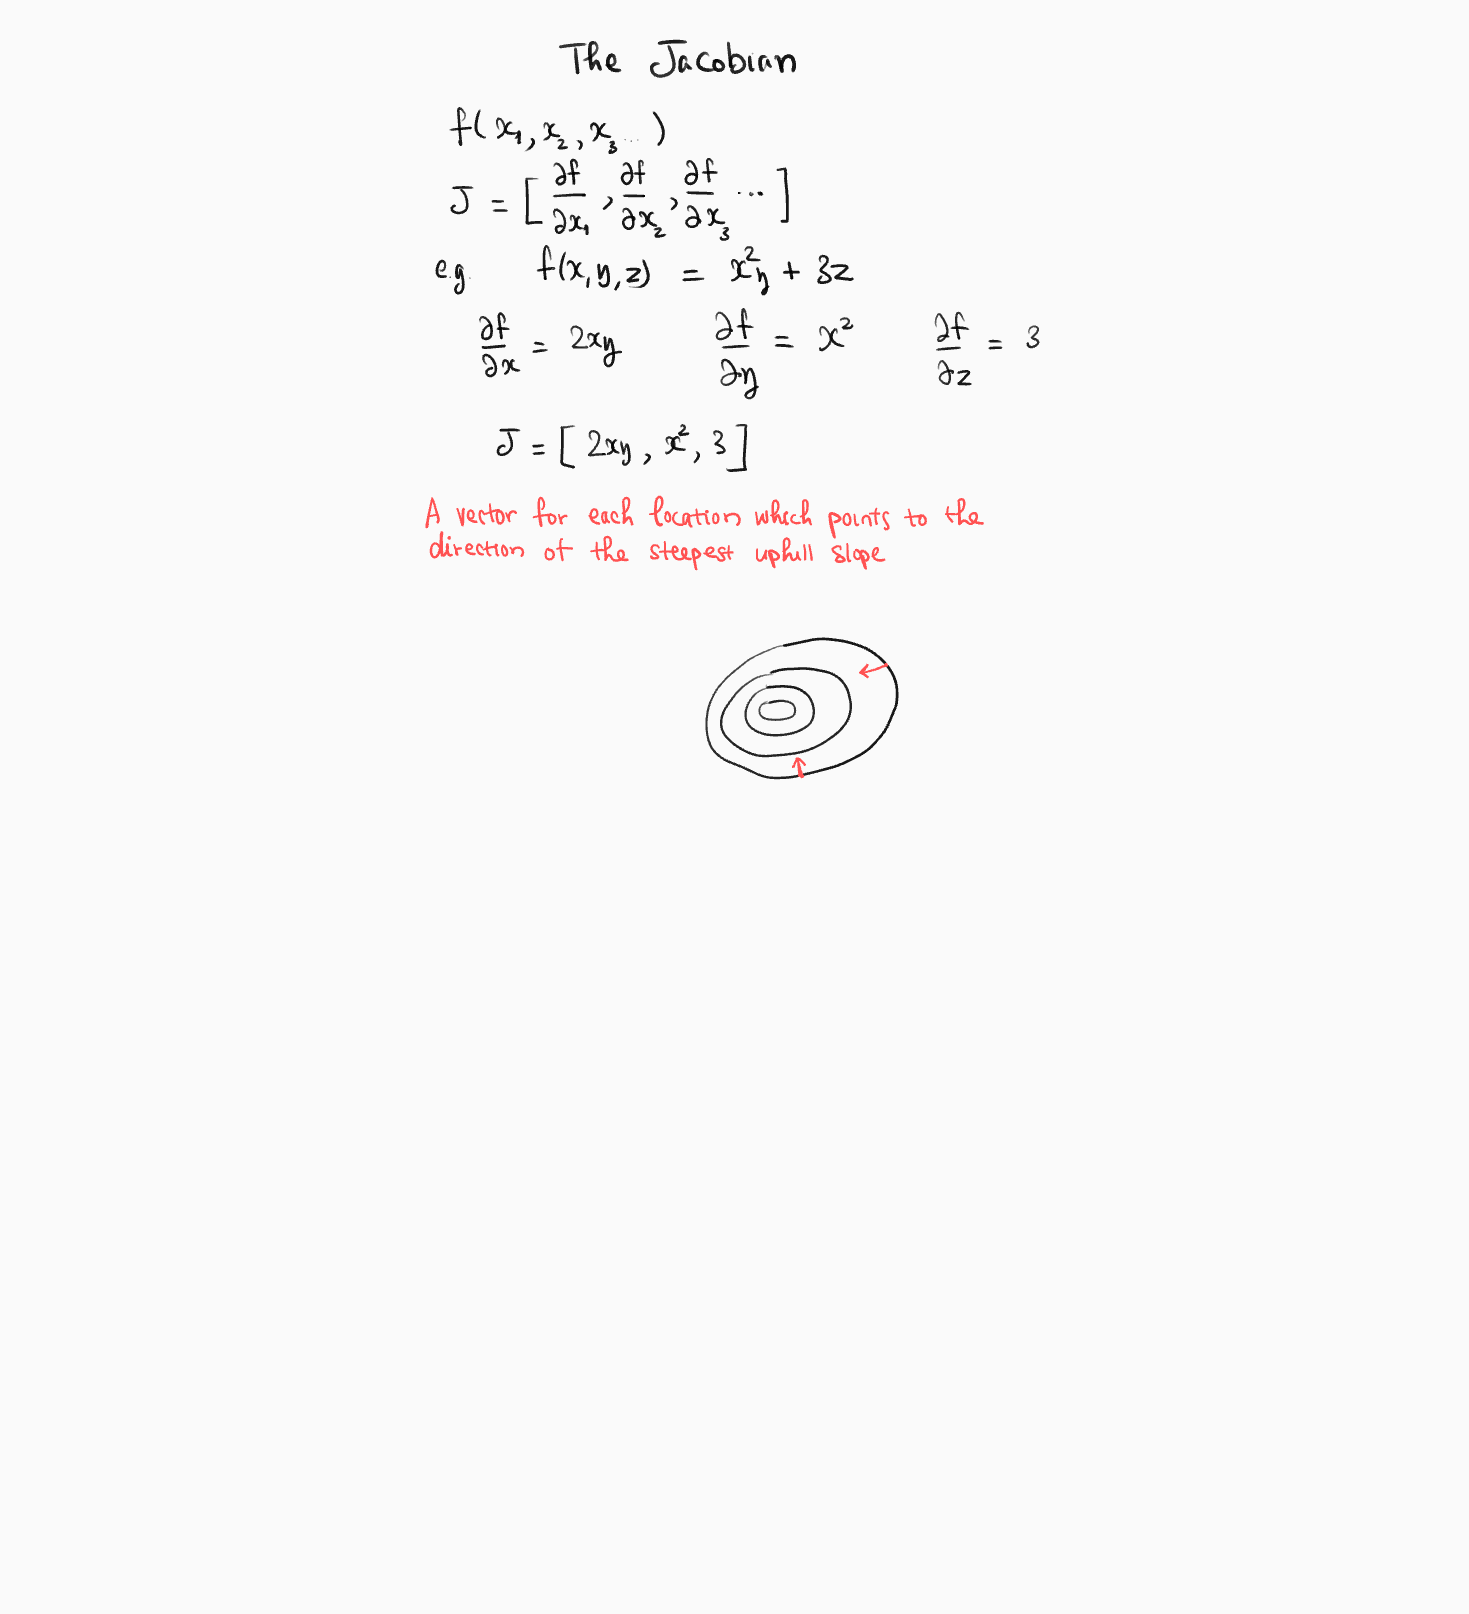 The Jacobian
f(x₁, x₂, x₃ ... )
J = [ ∂f/∂x₁ , ∂f/∂x₂ , ∂f/∂x₃ ... ]
e.g. f(x, y, z) = x²y + 3z
∂f/∂x = 2xy ∂f/∂y = x² ∂f/∂z = 3
J = [ 2xy , x² , 3 ]
A vector for each location which points to the
direction of the steepest uphill slope